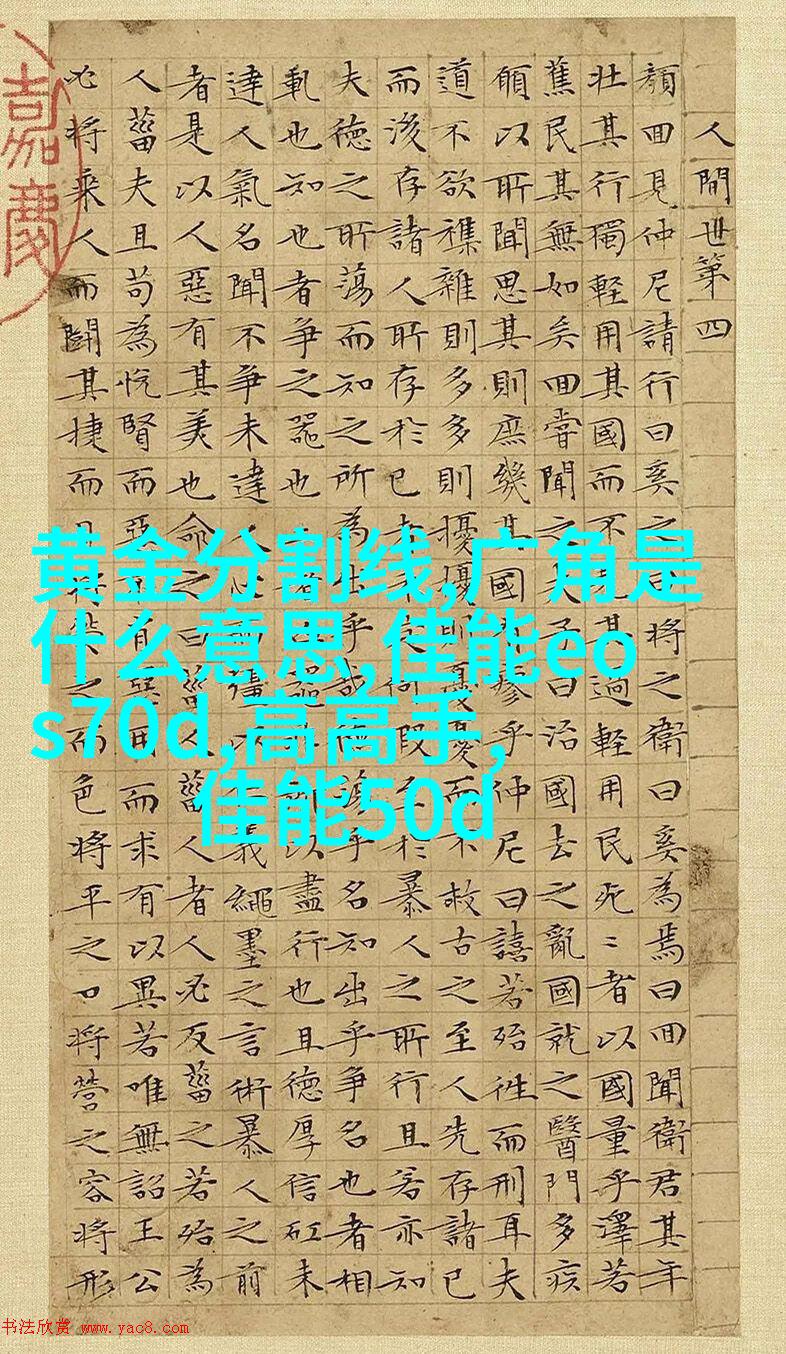 人間世第四
顏回見仲尼請行曰奚之曰將之衛曰奚為焉曰回聞衛君其年
壯其行獨輕用其國而不見其過輕用民死〻者以國量乎澤若
蕉民其無如矣回嘗聞之夫子曰治國去之亂國就之醫門多疾
願以所聞思其則庶幾其國瘳乎仲尼曰譆若殆往而刑耳夫
道不欲襍雜則多多則擾擾則憂憂而不救古之至人先存諸已
而後存諸人所存於已者未定何暇至於暴人之所行且若亦知
夫德之所蕩而知之所為出乎哉德蕩乎名知出乎爭名也者相
軋也知也者爭之器也者器所以盡行也且德厚信矼未
達人氣名聞不爭未達人心彊以義繩墨之言術暴人之前
者是以人惡有其美也命之曰菑人菑人者人必反菑之若殆為
人菑夫且苟為悅賢而惡有惡用而求有以異若唯無詔王公
必將乘人而鬭其捷而目將熒之而色將平之口將營之容將形
嘉慶
黄金分割线,广角是
什么意思,佳能eo
s70d,高高手,
佳能50d
书法欣赏 www.yac8.com